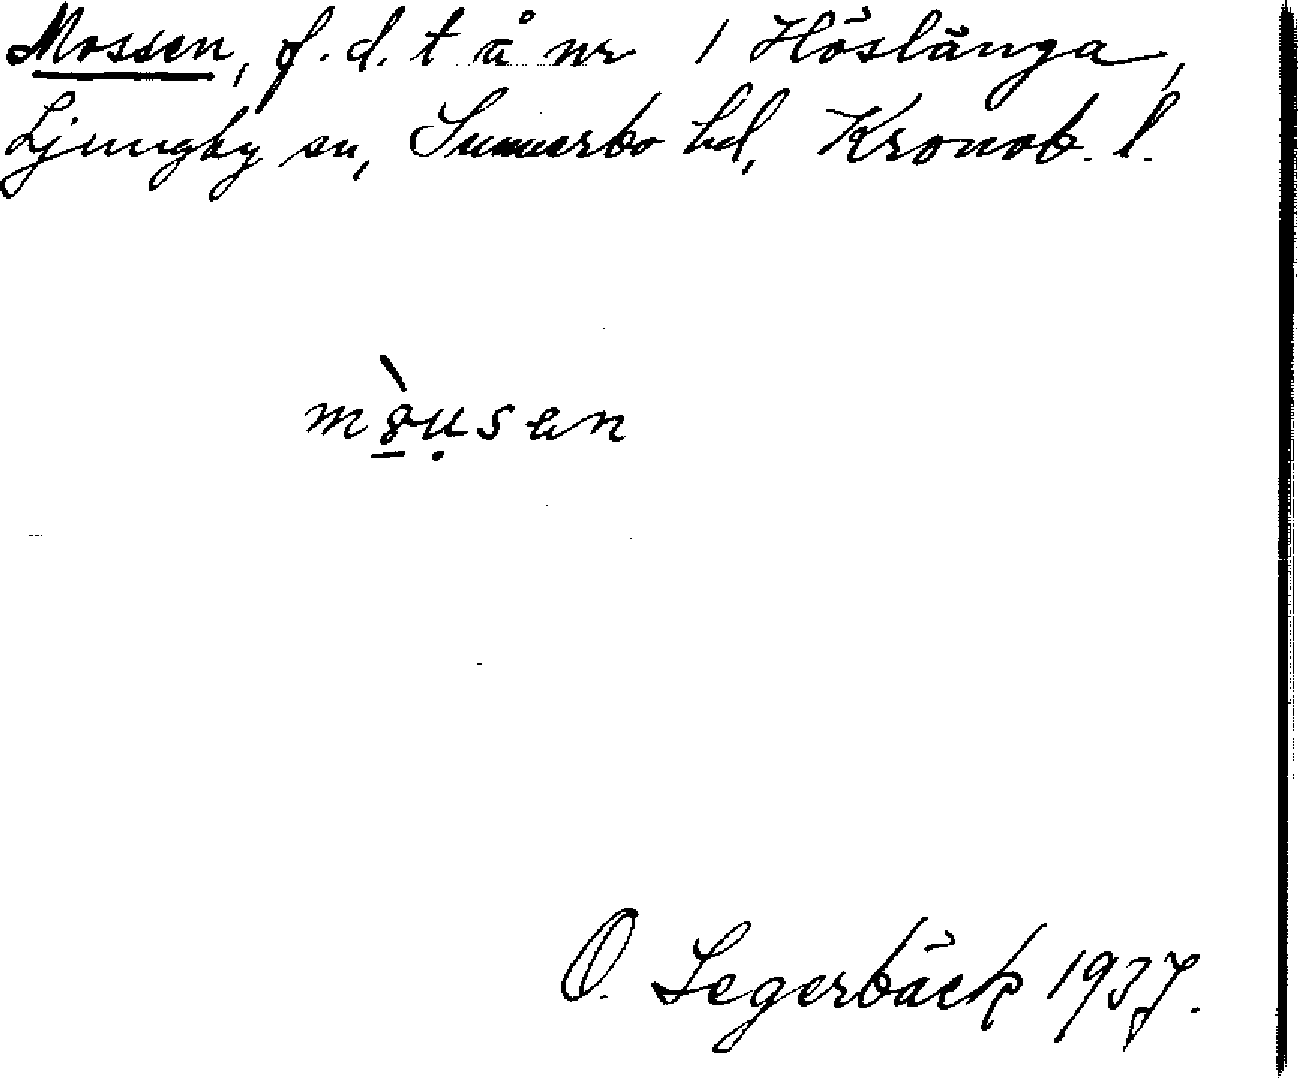 Mossen, f.d.t å nr 1 Höslänga,
Ljungby sn, Sunnerbo hd, Kronob. l.
mòu̯sen
O. Segerbäck 1937.